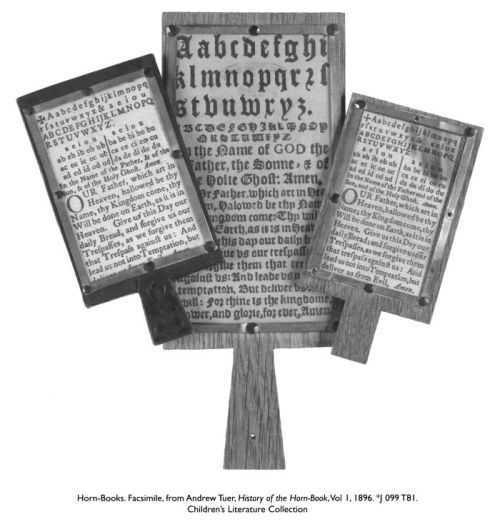 ✠Aabcdefghijklmnopq
rſstuvwxyz& aeiou
ABCDEFGHIJKLMNOPQ
RSTUVWXYZ.
a e i o u a e i o u
ab eb ib ob ub ba be bi bo bu
ac ec ic oc uc ca ce ci co cu
ad ed id od ud da de di do du
In the Name of the Father, & of the
Son, & of the Holy Ghoſt. Amen.
OUR Father, which art in
Heaven, hallowed be thy
Name; thy Kingdom come, thy
Will be done on Earth, as it is in
Heaven. Give us this Day our
daily Bread; and forgive us our
Treſpaſſes, as we forgive them
that Treſpaſs againſt us: And
lead us not into Temptation, but
Aabcdefghi
klmnopqrꝛſ
stvuwxyz.
the Name of GOD the
Father, the Sonne, & of
Holie Ghoſt: Amen.
Father, which art in
Halowed be thy Nam
kingdom come: Thy wil
Earth, as it is in
this day our daily b
us our treſpaſ
them that tre
againſt vs: And leade vs n
temptation, But deliver vs
evill: For thine is the kingdome
power, and glorie, for ever, Amen
✠Aabcdefghijklmnopq
rſstuvwxyz& aeiou
ABCDEFGHIJKLMNOPQ
RSTUVWXYZ.
a e i o u a e i o u
ab eb ib ob ub ba be bi bo bu
ac ec ic oc uc ca ce ci co cu
ad ed id od ud da de di do du
In the Name of the Father, and of the
Son, and of the Holy Ghoſt. Amen.
OUR Father, which art in
Heaven, hallowed be thy
Name; thy Kingdom come, thy
Will be done on Earth, as it is in
Heaven. Give us this Day our
daily Bread; and forgive us our
Treſpaſſes, as we forgive them
that treſpaſs againſt us: And
lead us not into Temptation, but
deliver us from Evil. Amen.
Horn-Books. Facsimile, from Andrew Tuer, History of the Horn-Book, Vol 1, 1896. *J 099 T81.
Children's Literature Collection